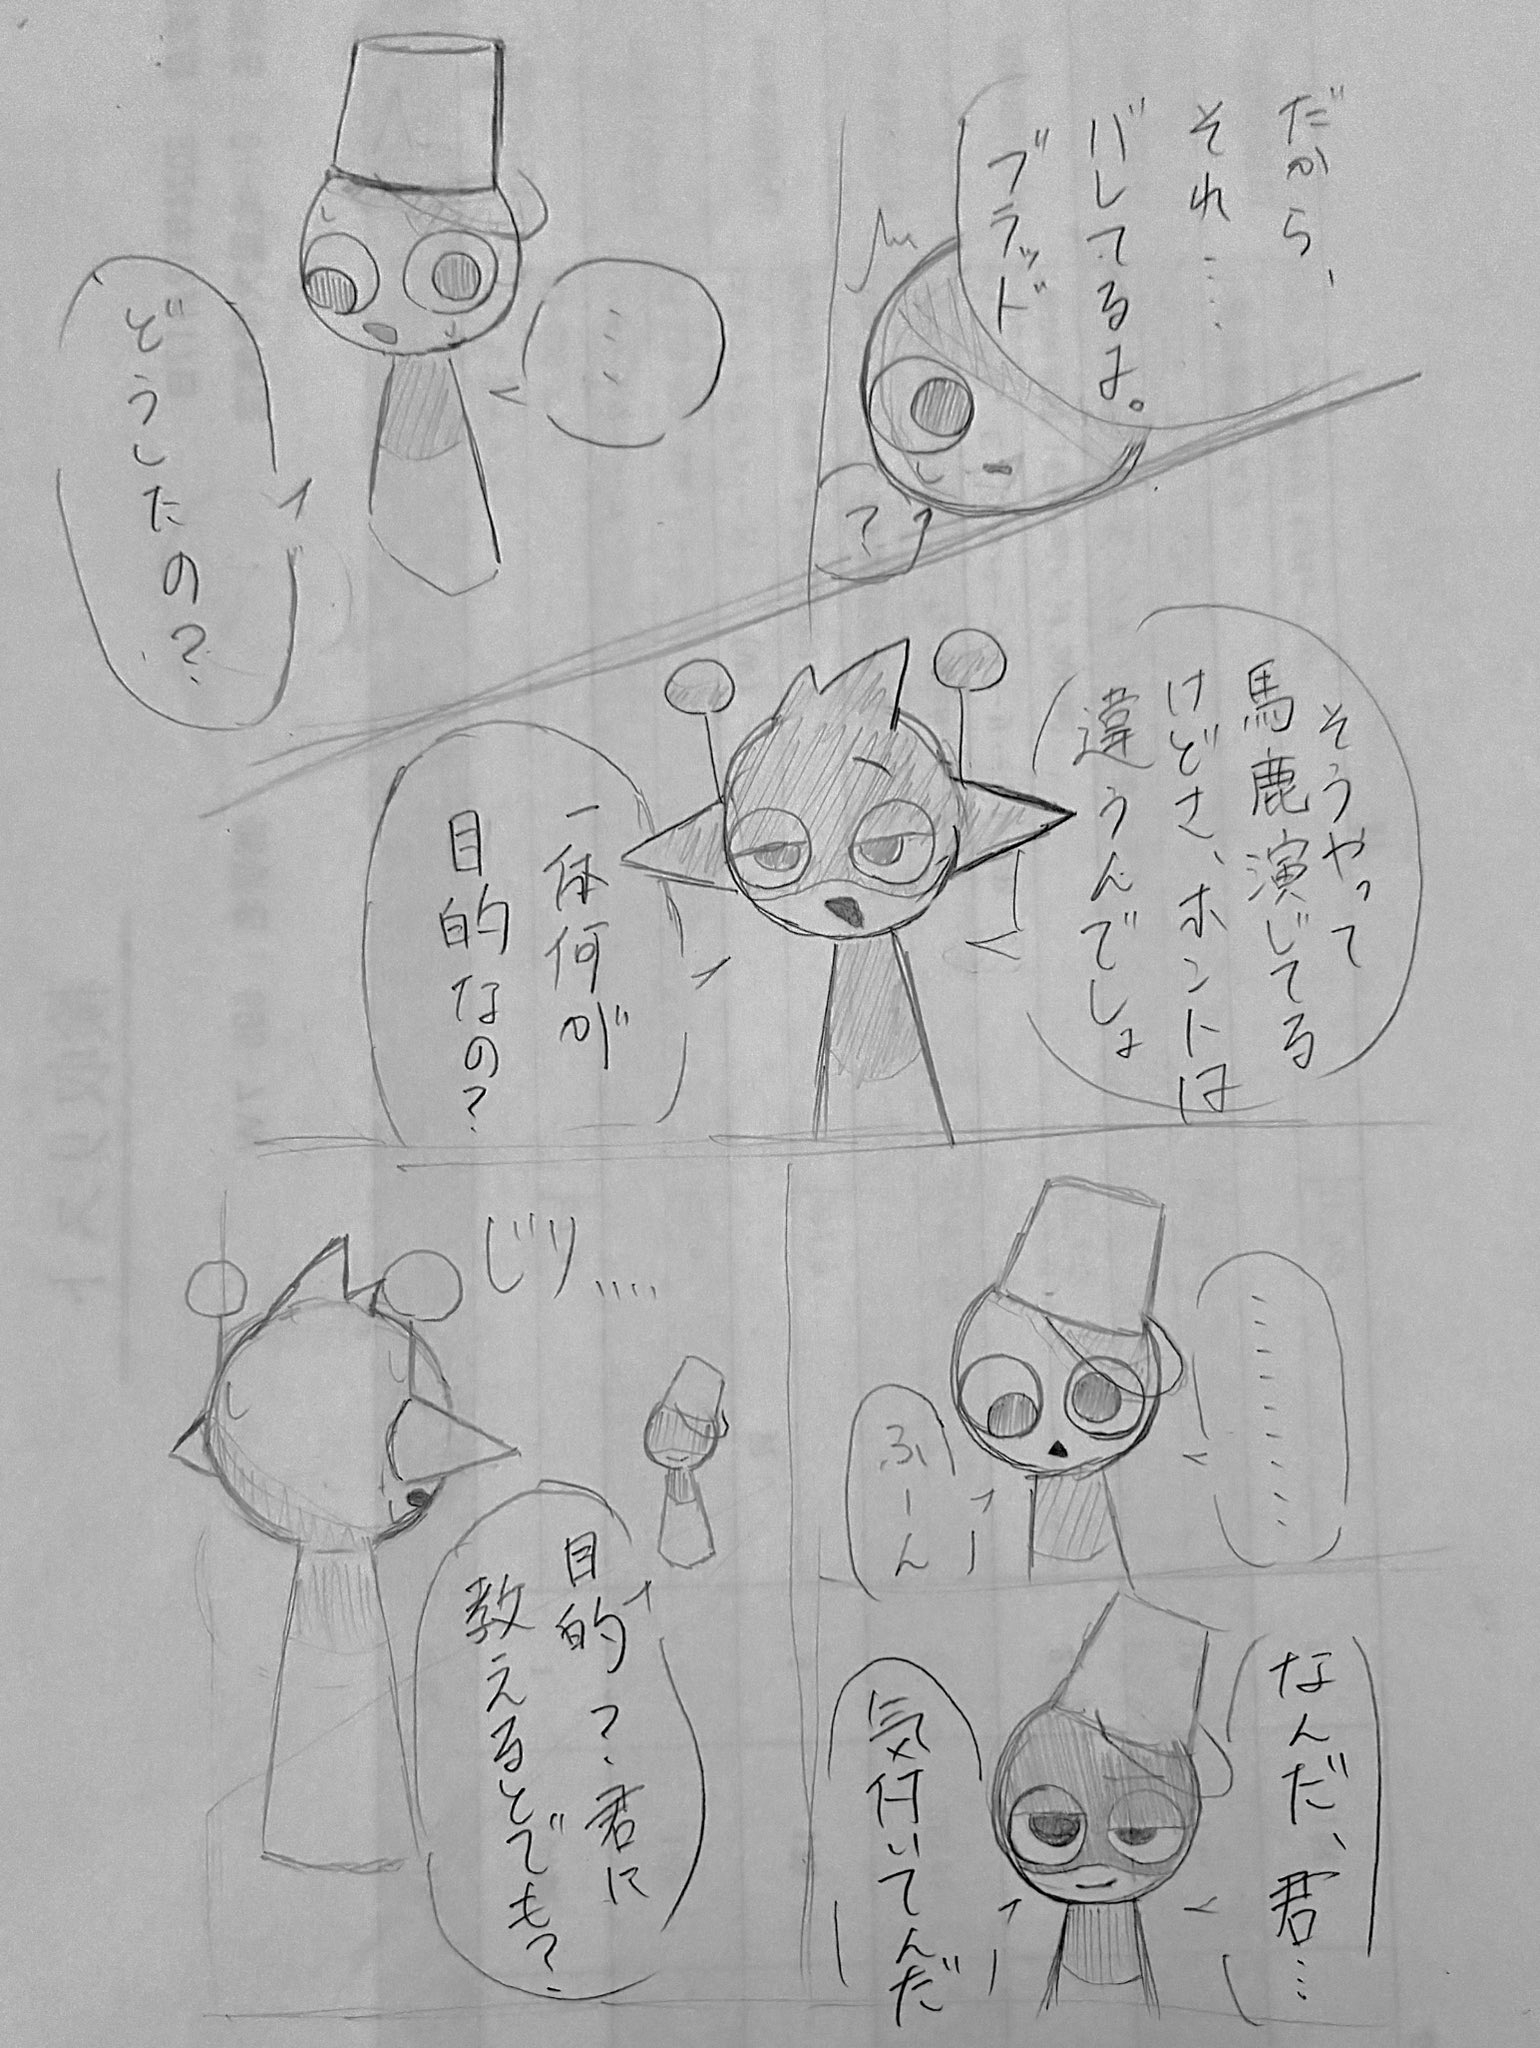 だから、
それ…
バレてるよ。
ブラッド
？
…
どうしたの？
そうやって
馬鹿演じてる
けどさ、ホントは
違うんでしょ
一体何が
目的なの？
………
ふーん
なんだ、君…
気付いてんだ
じり….
目的？君に
教えるとでも？